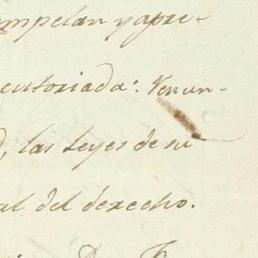 ompelan y apre-
ecutoriada: Renun-
d, las Leyes de su
al del derecho.